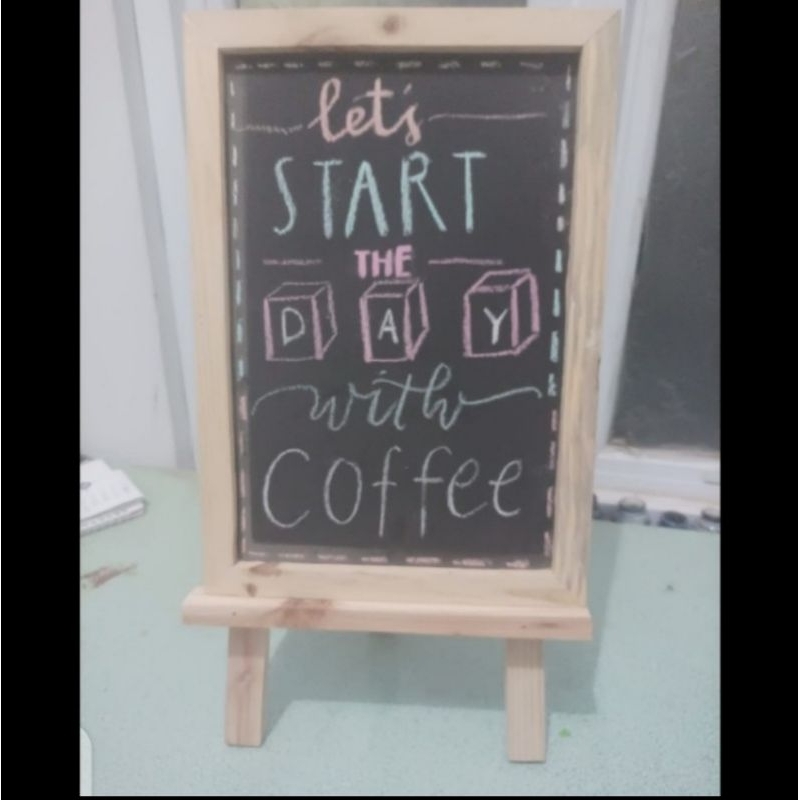 let's
START
THE
DAY
with
Coffee